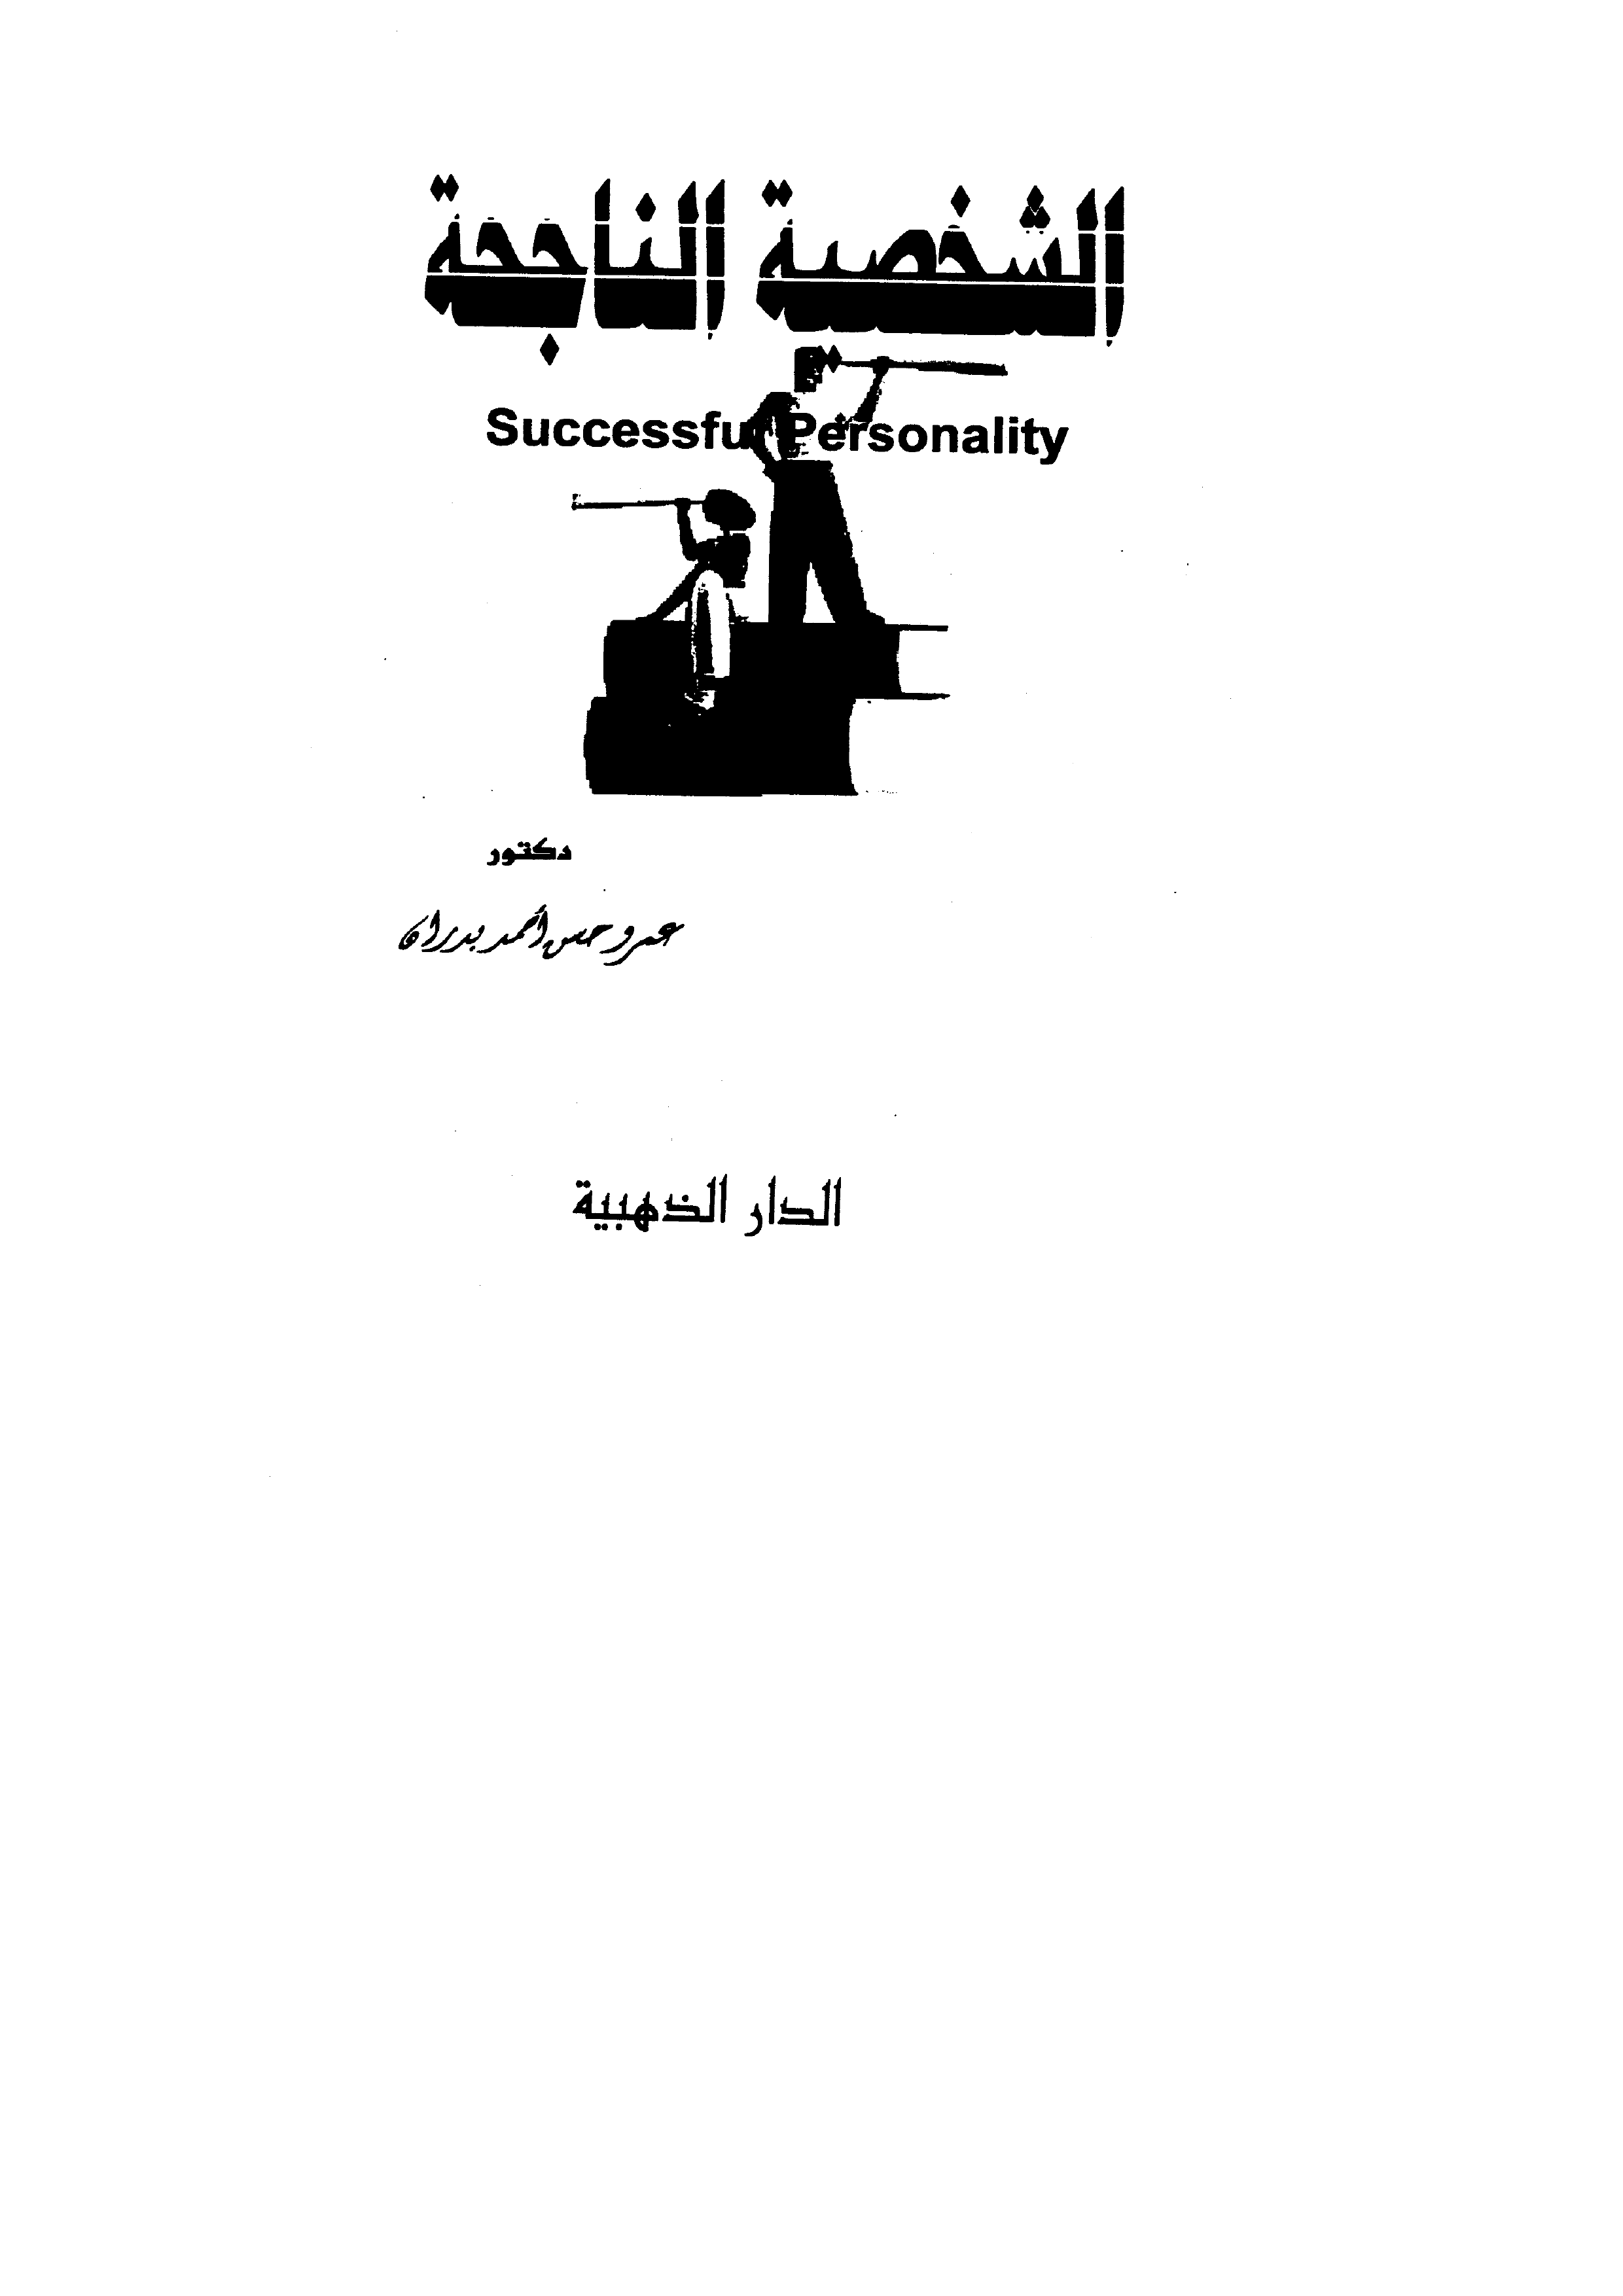 الشخصية الناجحة
Successful Personality
دكتور
عمرو حسن أحمد بدران
الدار الذهبية